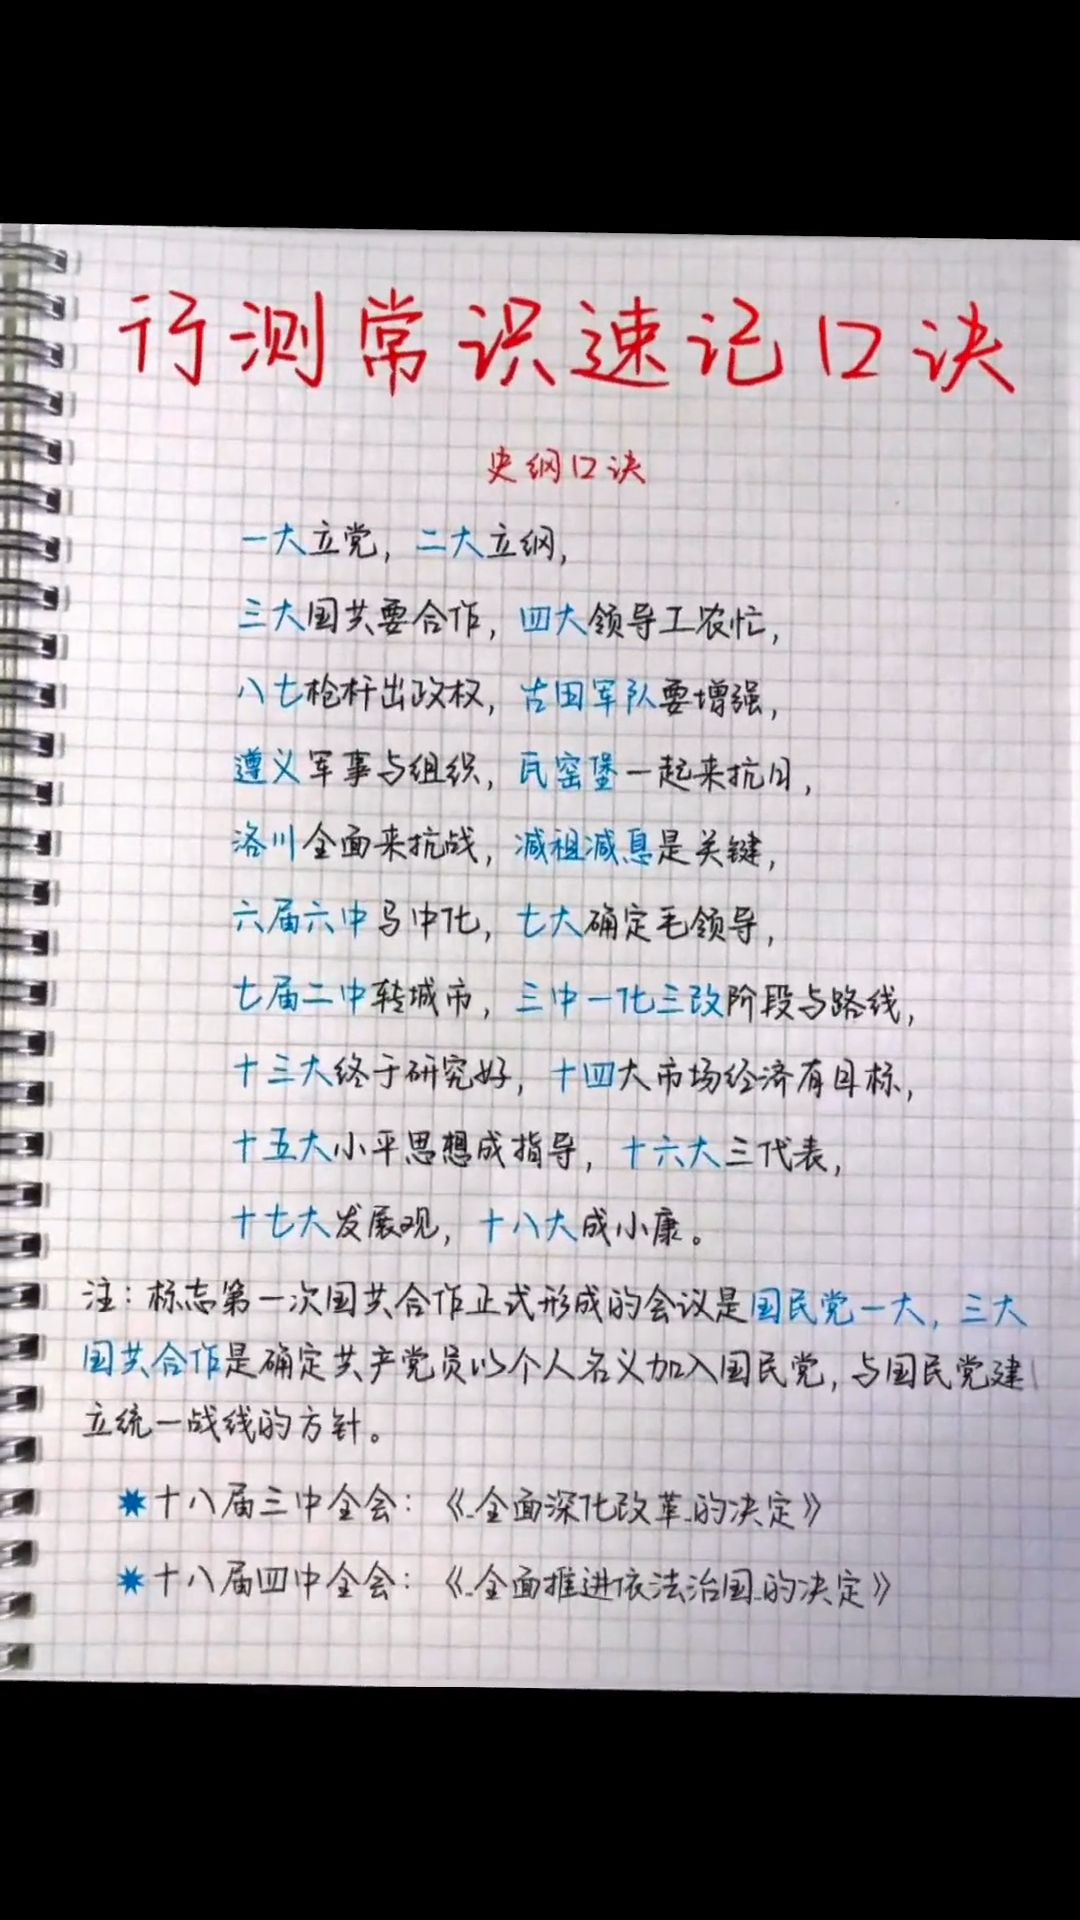 行测常识速记口诀
史纲口诀
一大立党，二大立纲，
三大国共要合作，四大领导工农忙，
八七枪杆出政权，古田军队要增强，
遵义军事与组织，瓦窑堡一起来抗日，
洛川全面来抗战，减租减息是关键，
六届六中马中化，七大确定毛领导，
七届二中转城市，三中一化三改阶段与路线，
十三大终于研究好，十四大市场经济有目标，
十五大小平思想成指导，十六大三代表，
十七大发展观，十八大成小康。
注：标志第一次国共合作正式形成的会议是国民党一大，三大
国共合作是确定共产党员以个人名义加入国民党，与国民党建
立统一战线的方针。
✷十八届三中全会：《…全面深化改革…的决定》
✷十八届四中全会：《…全面推进依法治国…的决定》